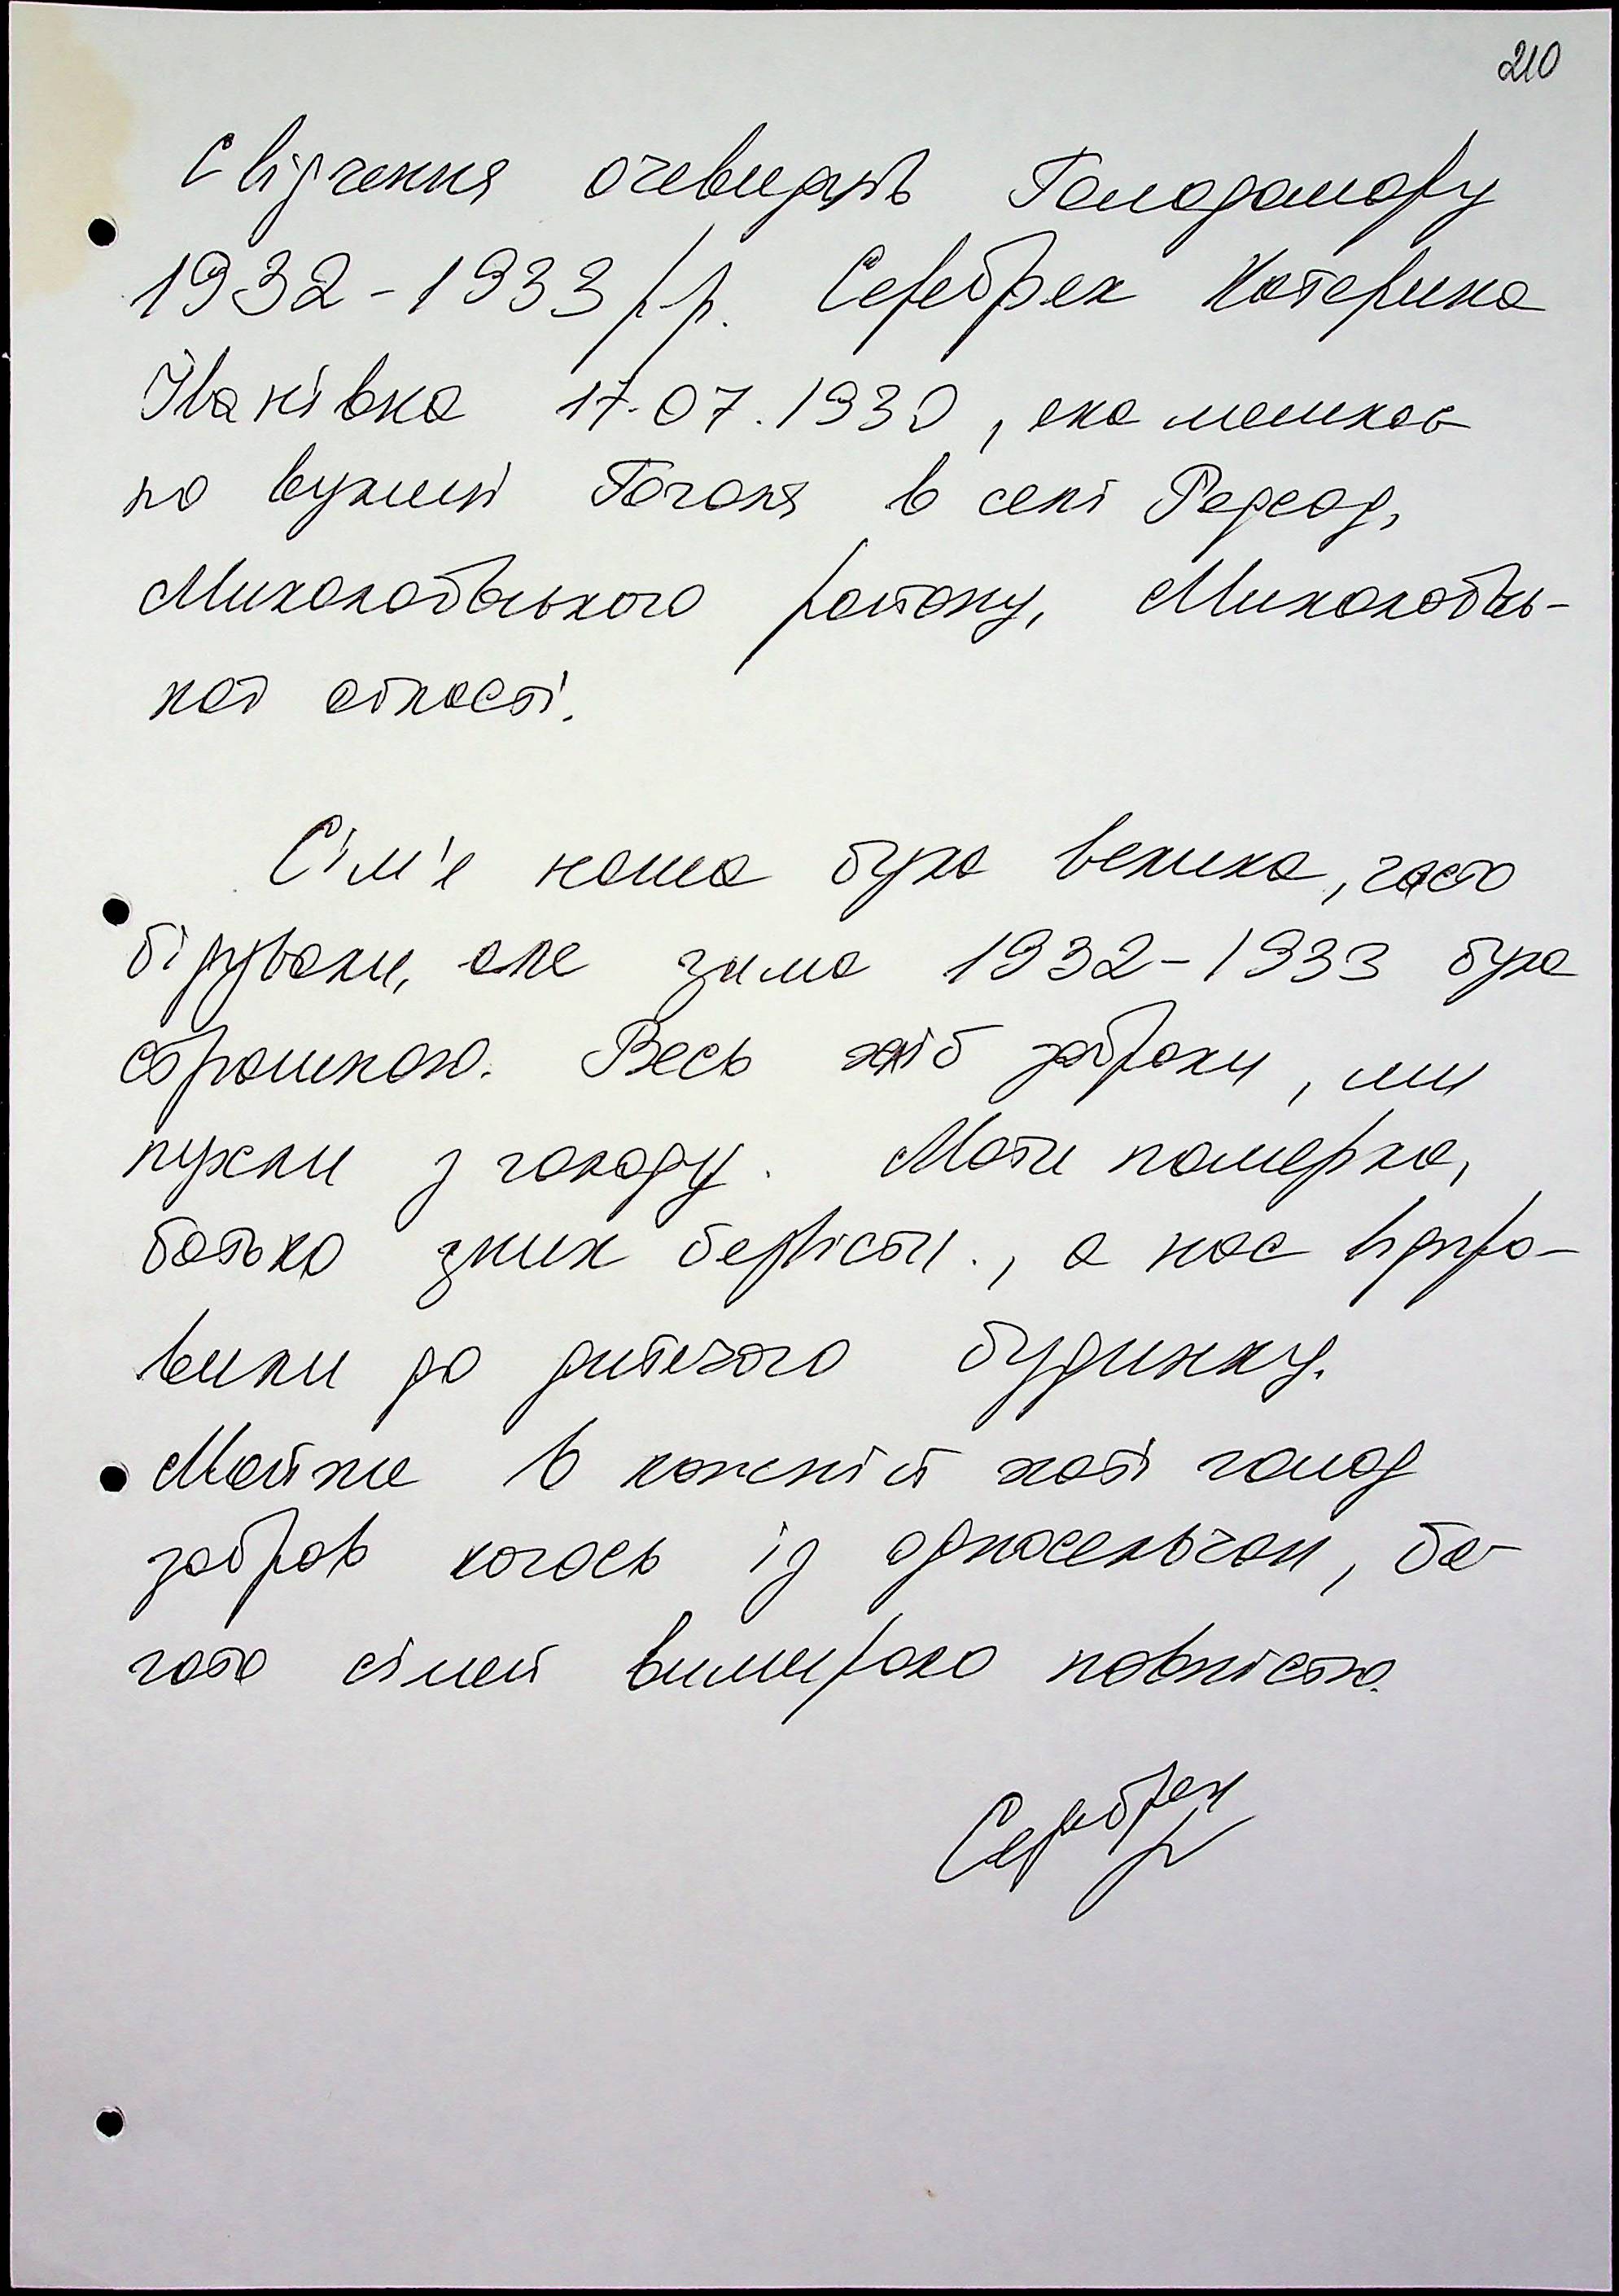 210
Свідчення очевидців Голодомору
1932-1933 р.р. Серебрях Катерина
Іванівна 17.07.1930, яка мешкає
по вулиці Гоголя в селі Радсад,
Миколаївського району, Миколаївсь-
кої області.
Сім'я наша була велика, часто
бідували, але зима 1932-1933 була
страшною. Весь хліб забрали, ми
пухли з голоду. Мати померла,
батько зник безвісти., а нас відпра-
вили до дитячого будинку.
Майже в кожній хаті голод
забрав когось із односельчан, ба-
гато сімей вимерало повністю.